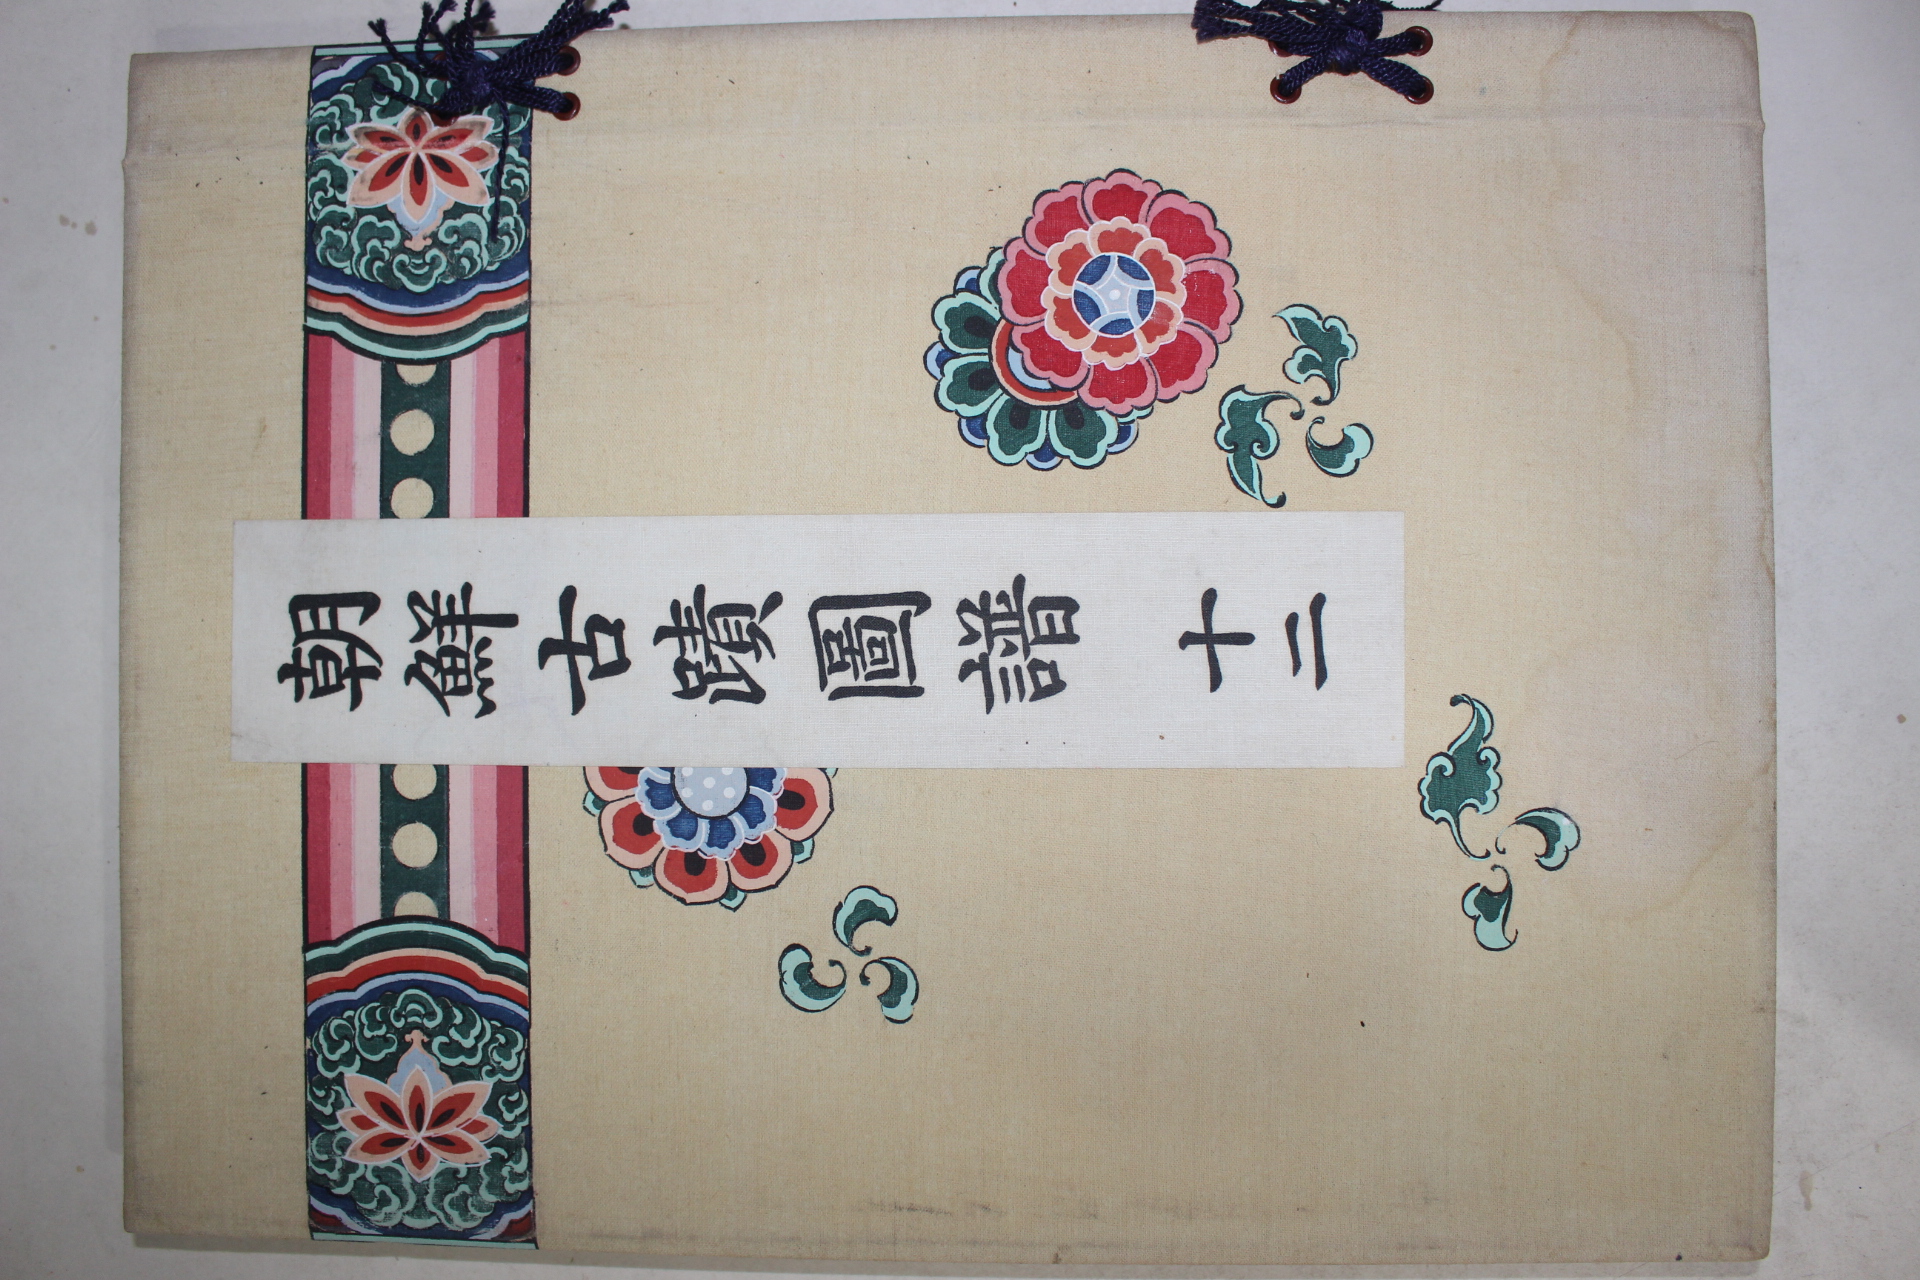 朝鮮古蹟圖譜 十二